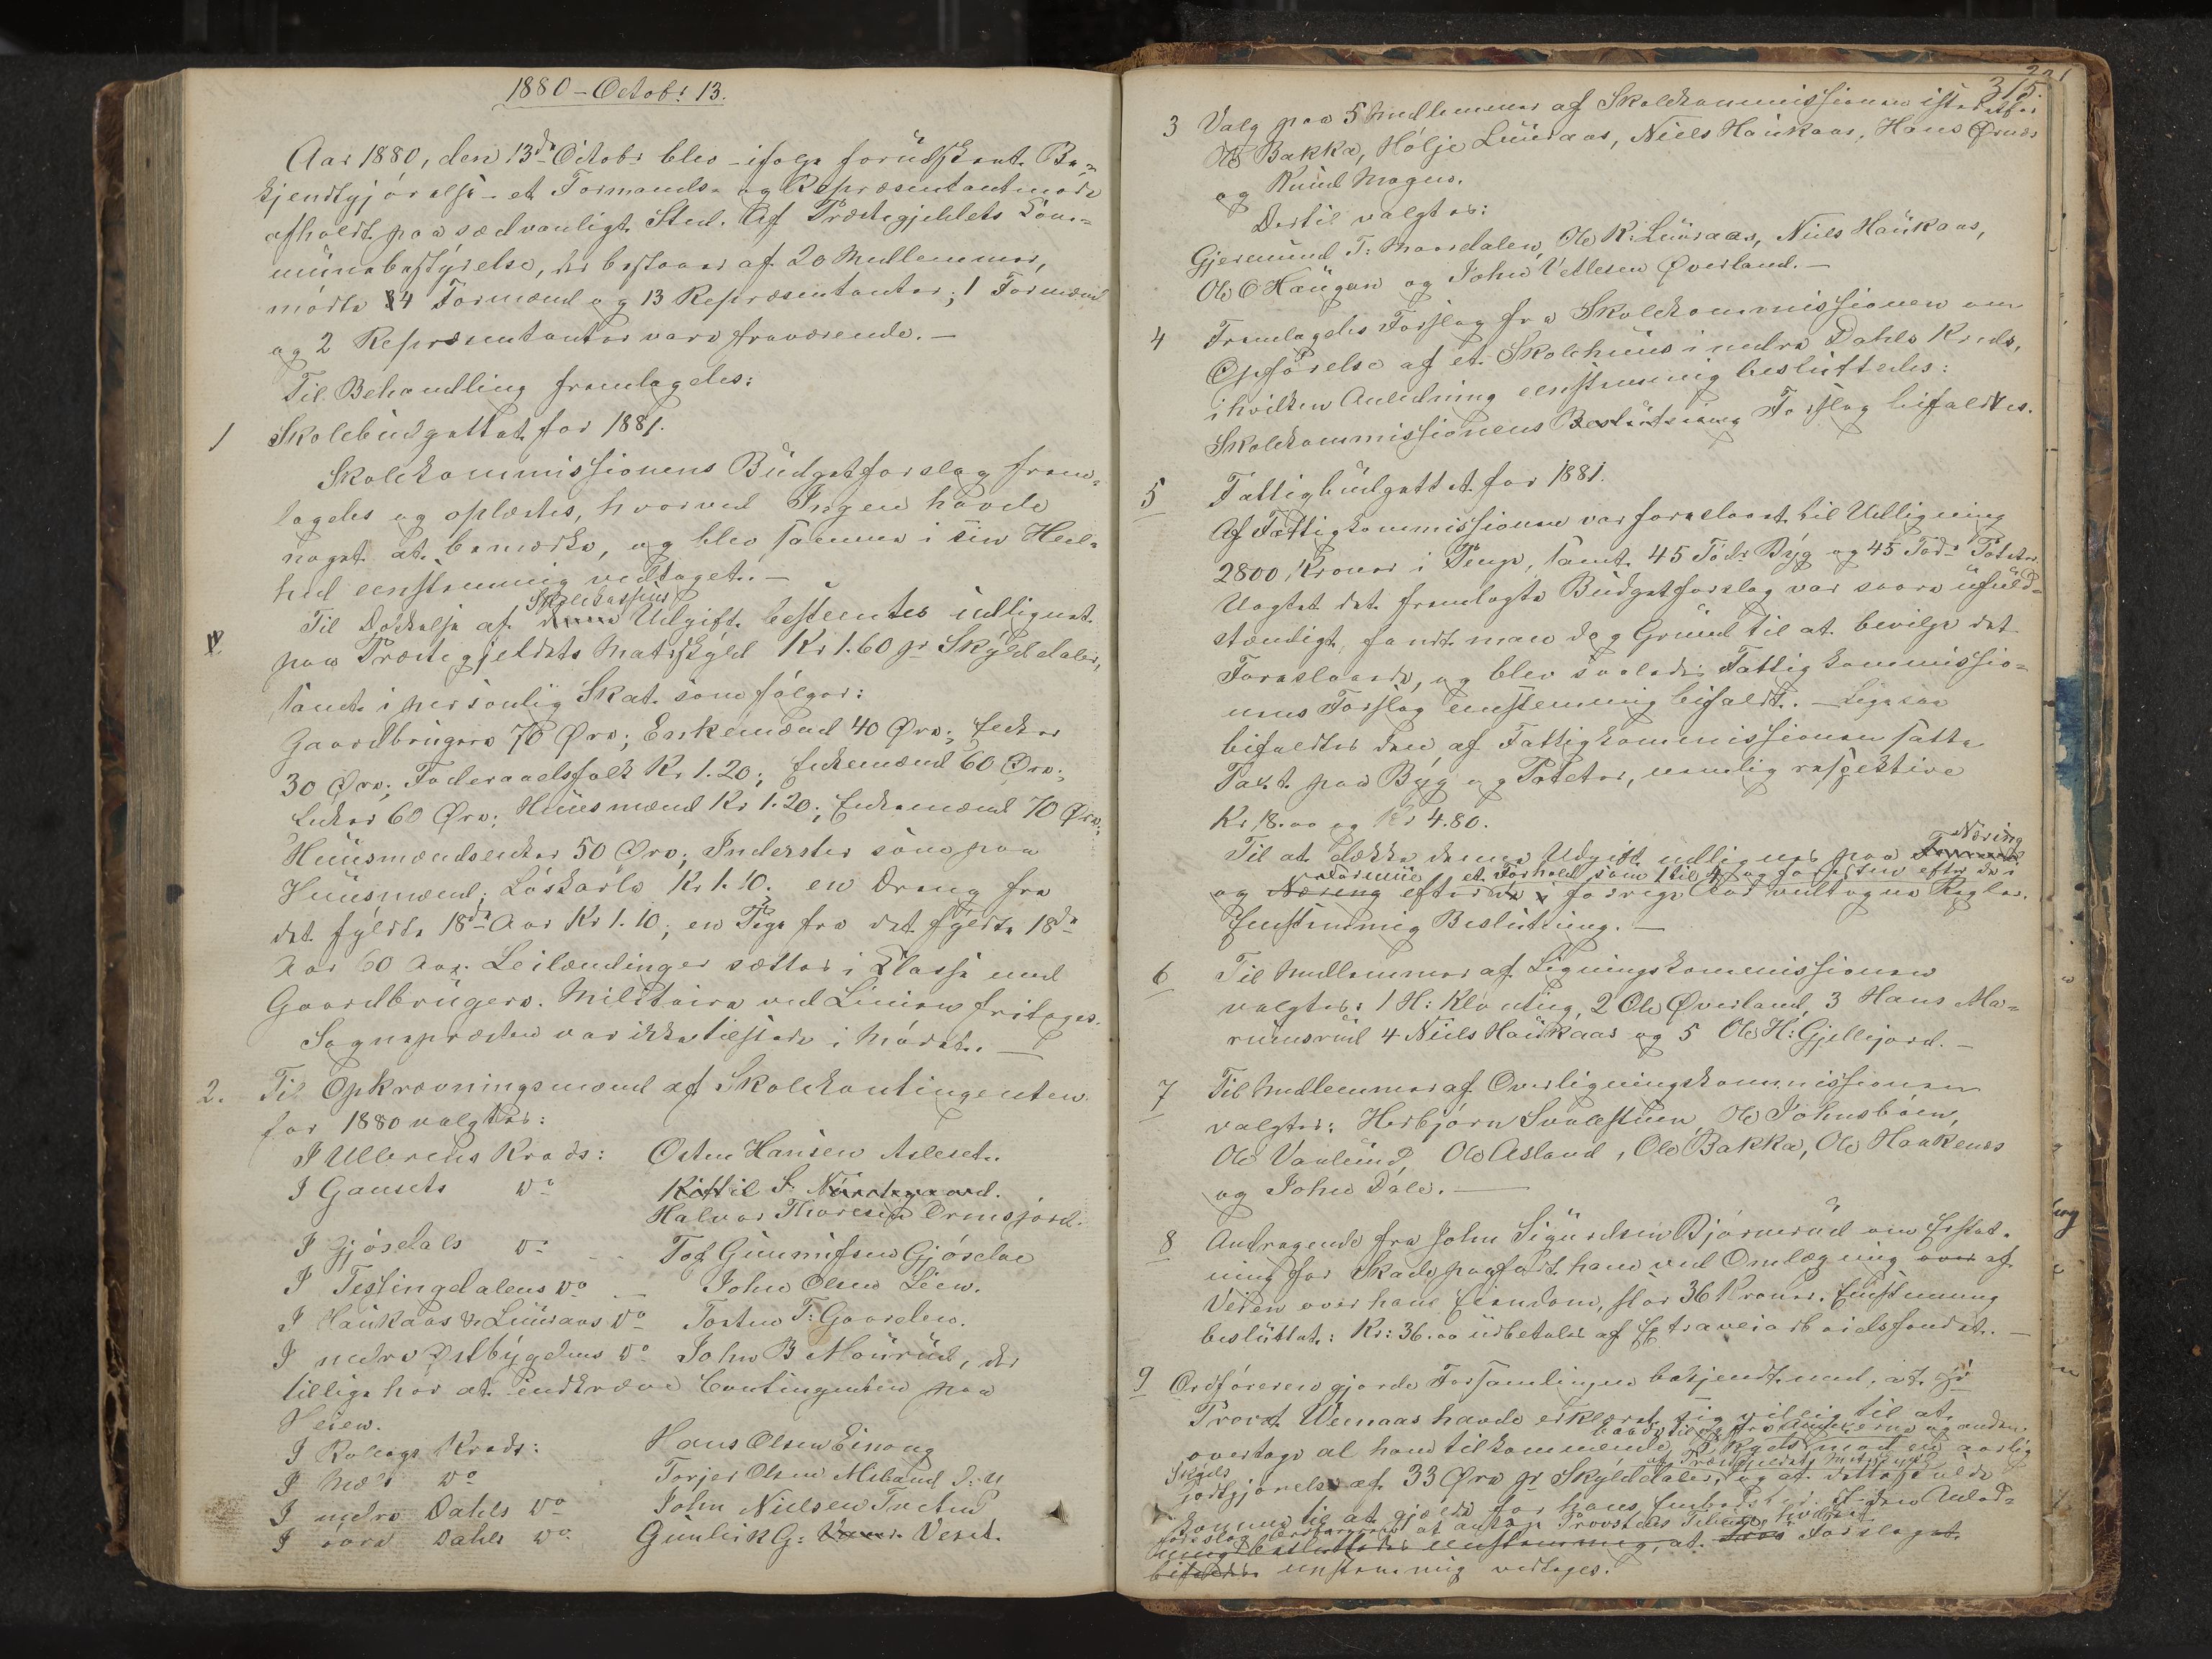 1880 - Octobr 13.
Aar 1880, den 13de Octobr blev - ifølge forudskeet Be-
kjendtgjørelse - et Formands- og Repræsentantmøde
afholdt paa sædvanligt Sted. Af Præstegjeldets Com-
münebestÿrelse, der bestaaer af 20 Medlemmer,
mødte 4 Formænd og 13 Repræsentanter; 1 Formand
og 2 Repræsentanter vare fraværende. -
Til Behandling fremlagdes:
1 Skolebüdgettet for 1881.
Skolekommissionens Büdgetforslag frem-
lagdes og oplæstes, hvorved Ingen havde
noget at bemærke, og blev samme i sin Hel-
hed eenstemmig vedtaget. -
Skolekassens
Til Dækkelse af denne Udgift bestemtes üdlignet
paa Præstegjeldets Matrskÿld Kr 1.60 pr Skÿlddaler,
samt i personlig Skat som følger:
Gaardbrügere 70 Øre; Enkemænd 40 Øre; Enker
30 Øre; Føderaadsfolk Kr 1.20; Enkemænd 60 Øre;
Enker 60 Øre; Hüusmænd Kr 1.20; Enkemænd 70 Øre;
Hüüsmændsenker 50 Øre; Inderster som paa
Hüüsmænd; Løskarle Kr 1.10; en Dreng fra
det fÿldte 18de Aar Kr 1.10; en Pige fra det fÿldte 18de
Aar 60 Øre. Leilændinger sættes i Classe med
Gaardbrügere. Militaire ved Linien fritages.
Sognepræsten var ikke tilstede i Mødet. -
2. Til Opkrævningsmænd af Skolekontingenten
for 1880 valgtes:
I Ullerens Kreds: Østen Hansen Aasleset.
I Gausets Do Kittil S. Nordregaard.
Halvor Thoresen Ormsjord.
I Gjøsdals Do Tof Gunnüfsen Gjøsdal
I Tessingdalens Do John Olsen Lien.
I Haukaas & Lüüraas Do Torten T: Gaarden.
I nedre Østbÿgdens Do John B Maürüd, der
tillige har at indkræve Contingenten paa
Heien.
I Rollags Kreds: Hans Olsen Einong
I Mæl Do Torjer Olsen Miland d: y
I nedre Dahls Do John Nielsen Tvedten
I øvre Dahls Do Günleik G: Vaa Veset.
315.
3 Valg paa 5 Medlemmer af Skolekommissionen istedetfor
Ole Bakka, Hølje Lüüraas, Niels Haükaas, Hans Ørnes
og Knüd Mogens.
Dertil valgtes:
Gjermünd T: Maardalen, Ole K: Lüüraas, Niels Haükaas,
Ole O Haügan og John Vetlesen Øverland. -
4 Fremlagdes Forslag fra Skolekommissionen om
Opførelse af et Skolehüüs i nedre Dahls Kreds,
i hvilken Anledning eenstemmig beslüttedes:
Skolekommissionens Beslütning Forslag bifaldtes.
5 Fattigbüdgettet for 1881.
Af Fattigkommissionen var foreslaaet til Udligning
2800 Kroner i Penge, samt 45 Tdr Bÿg og 45 Tdr Poteter.
Uagtet det fremlagte Büdgetforslag var saare üfüld-
stændigt, fandt man dog Gründ til at bevilge det
Foreslaaede, og blev saaledes Fattigkommissio-
nens Forslag eenstemmig bifaldt. - Ligesaa
bifaldtes den af Fattigkommissionen satte
Taxt paa Bÿg og Poteter, nemlig respektive
Kr 18.00 og Kr 4.80.
Næring
Til at dække denne Udgift üdlignes paa
Formüe et Forhold som 1 til 4 og forresten efter de i
og Næring efter de i forrige Aar vedtagne Regler.
Eenstemmig Beslütning. -
6 Til Medlemmer af Ligningskommissionen
valgtes: 1 H: Klonteig, 2 Ole Øverland, 3 Hans Ma-
rumsrüd 4 Niels Haükaas og 5 Ole H: Gjellejord. -
7 Til Medlemmer af Overligningskommissionen
valgtes: Herbjørn Svalestuen, Ole Johnsbøen,
Ole Vaalünd, Ole Asland, Ole Bakka, Ole Haakenes
og John Dale. -
8 Andragende fra John Sigürdsen Bjørnerüd om Erstat-
ning for Skade paaført ham ved Omlægning over af
Veien over hans Eiendom, stor 36 Kroner. Eenstemmig
beslüttet: Kr: 36.00 üdbetales af Extraveiarbeidsfondet. -
9 Ordføreren gjorde Forsamlingen bekjendt med, at Hr
Provst Wemaas havde erklæret sig villig til at
overtage al ham tilkommende Skyds mod en aarlig
Godtgjørelse af 33 Øre pr Skÿlddaler, og at dette skülde
komme til at gjælde for hans Embedstid. I den Anled-
ning beslüttedes eenstemmig, at Forslaget
bifaldes eenstemmig vedtages.